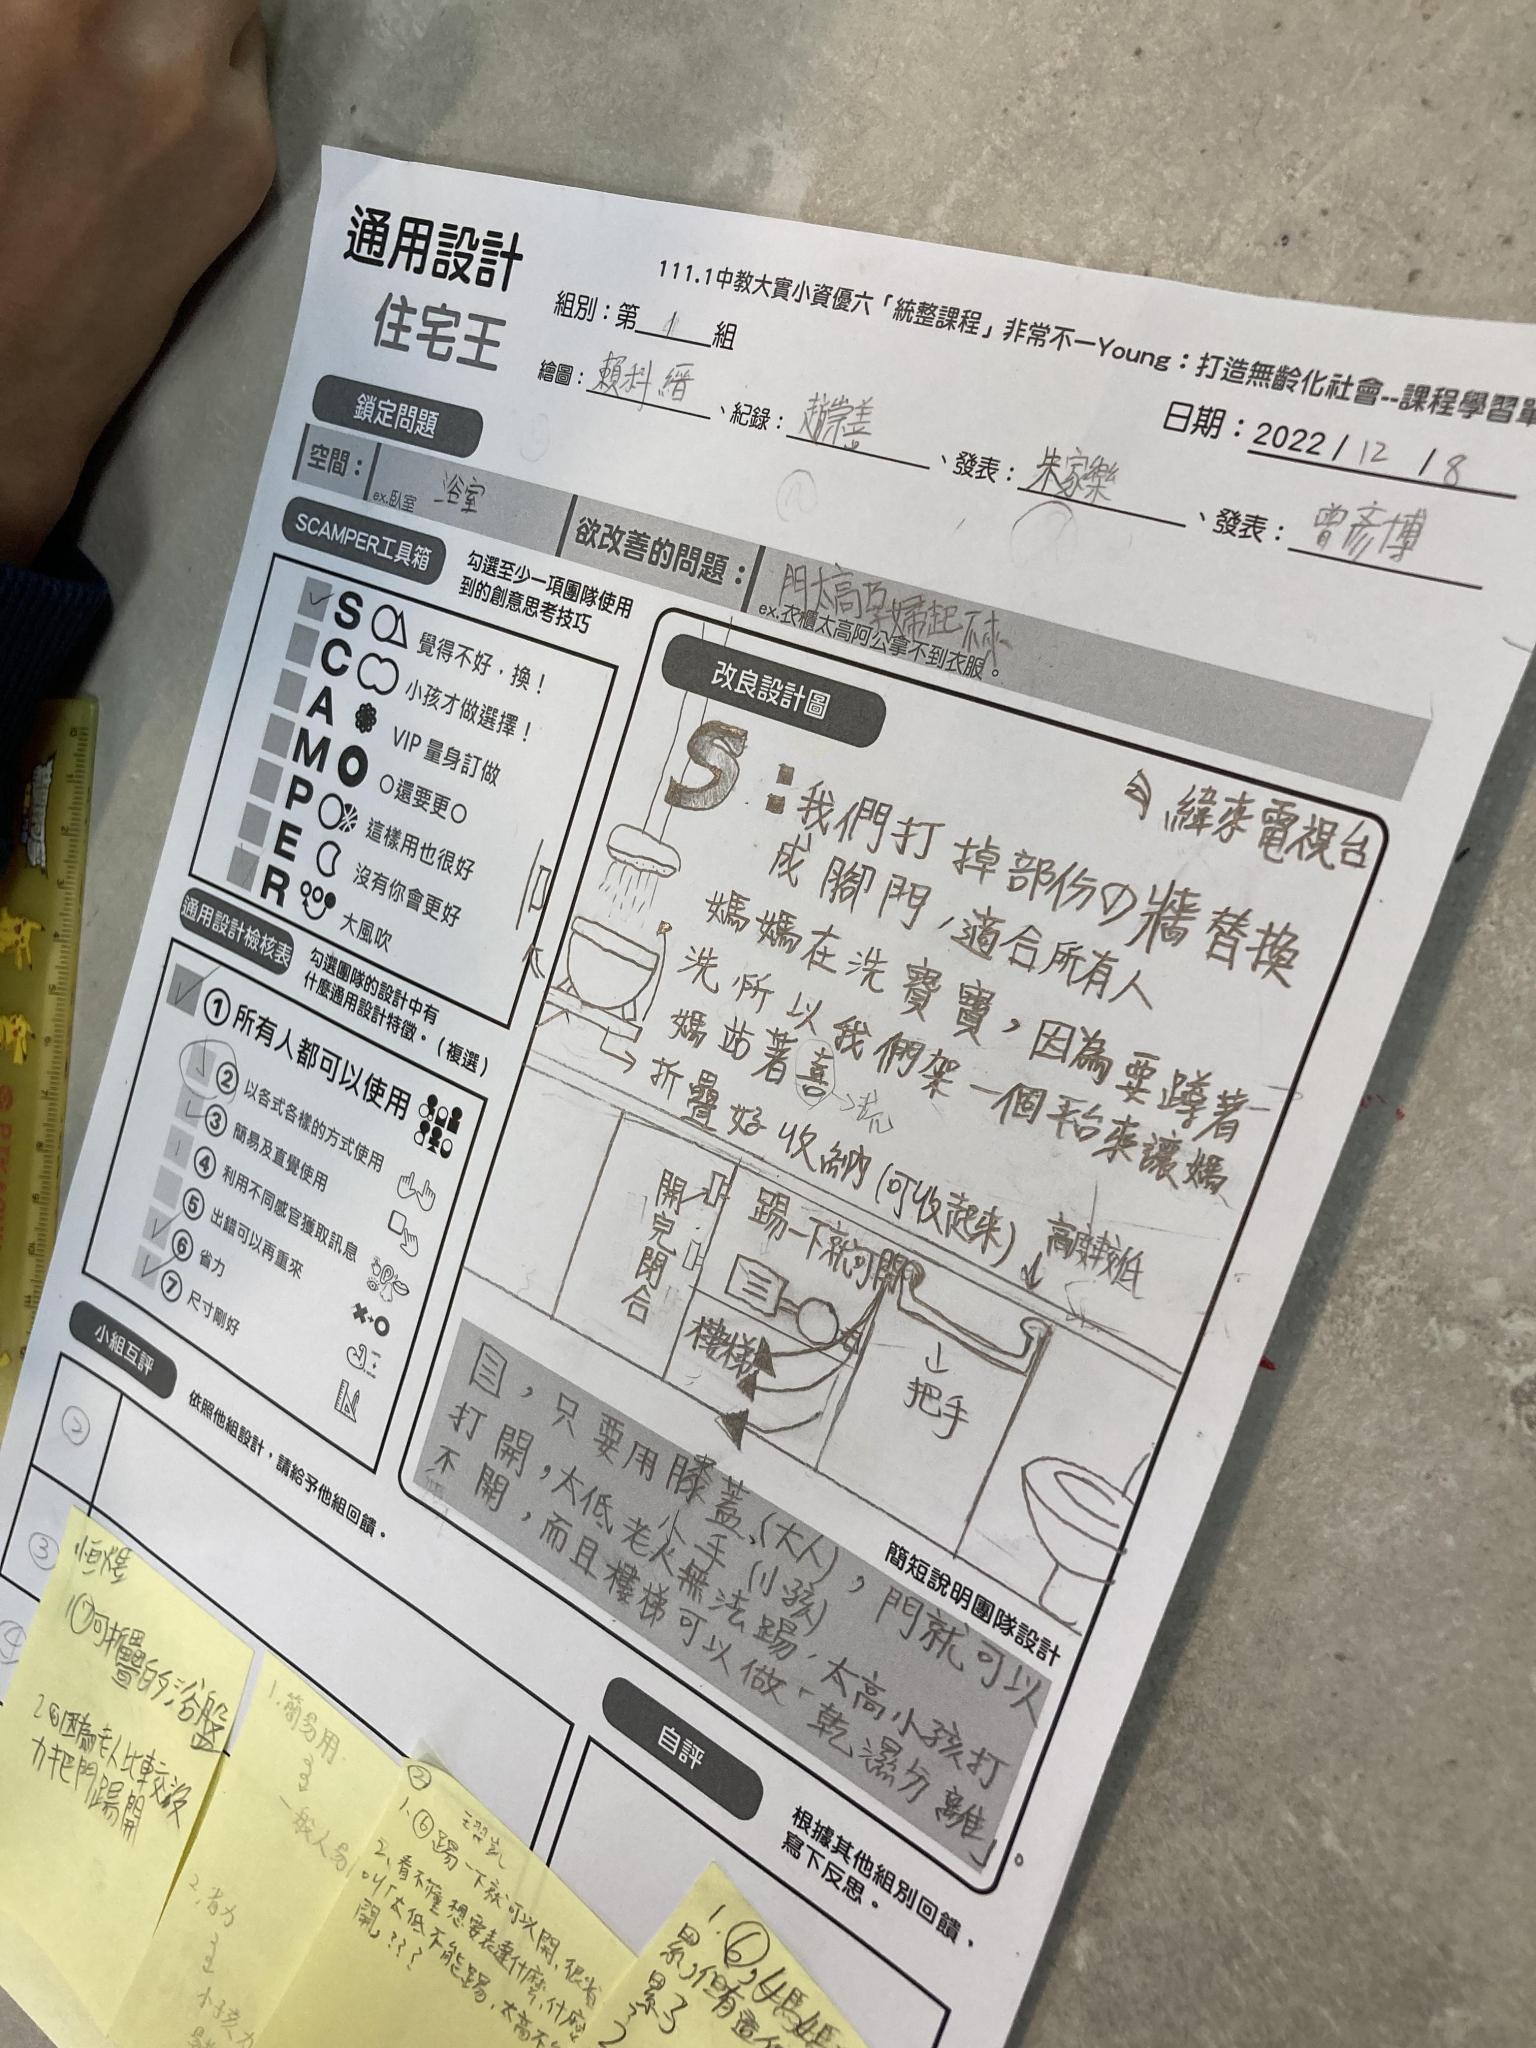 通用設計
住宅王
111.1中教大實小資優六「統整課程」非常不一Young：打造無齡化社會--課程學習單
組別：第 1 組
日期：2022 / 12 / 8
繪圖：賴科縉、紀錄：趙崇善、發表：朱家樂、發表：曾彥博
鎖定問題
空間：
ex.臥室
浴室
欲改善的問題：
門太高孕婦起不來
ex.衣櫃太高阿公拿不到衣服。
SCAMPER工具箱
勾選至少一項團隊使用
到的創意思考技巧
S 覺得不好，換！
C 小孩才做選擇！
A VIP 量身訂做
M ○還要更○
P 這樣用也很好
E 沒有你會更好
R 大風吹
通用設計檢核表
勾選團隊的設計中有
什麼通用設計特徵。（複選）
① 所有人都可以使用
② 以各式各樣的方式使用
③ 簡易及直覺使用
④ 利用不同感官獲取訊息
⑤ 出錯可以再重來
⑥ 省力
⑦ 尺寸剛好
改良設計圖
緯來電視台
S：我們打掉部份の牆替換
成腳門，適合所有人
媽媽在洗寶寶，因為要蹲著
洗，所以我們架一個平台來讓媽
媽站著喜→洗
折疊好收納(可收起來)
高度較低
開完閉合
踢一下就可開
樓梯
把手
簡短說明團隊設計
目，只要用膝蓋(大人)，門就可以
小手(小孩)
打開，太低老人無法踢，太高小孩打
不開，而且樓梯可以做「乾濕分離」。
小組互評
依照他組設計，請給予他組回饋。
②
③
④
自評
根據其他組別回饋，
寫下反思。
1.⑦可折疊的浴盤
2.⑥因為老人比較沒
力把門踢開
1.簡易用
一般人易
2.省力
小孩力
②
1.⑥踢一下就可以開，很省
2.看不懂想要表達什麼，什麼
叫「太低不能踢，太高不
開」???
1.⑥，媽媽
累，但有這
累了
2